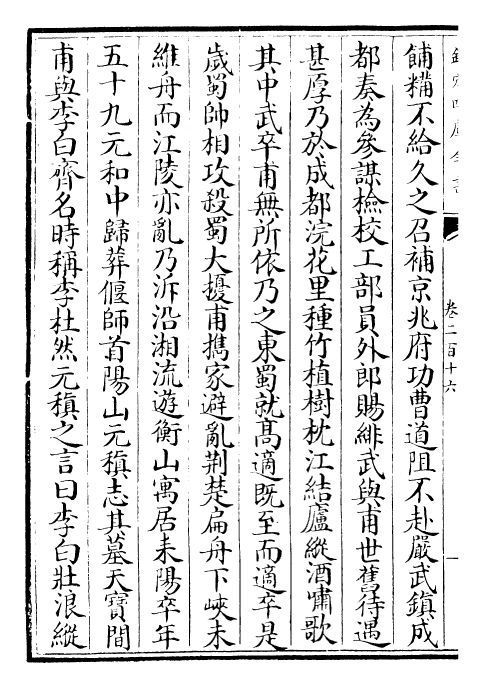 欽定四庫全書
卷二百十六
餔糒不給久之召補京兆府功曹道阻不赴嚴武鎮成
都奏為參謀檢校工部員外郎賜緋武與甫世舊待遇
甚厚乃於成都浣花里種竹植樹枕江結廬縱酒嘯歌
其中武卒甫無所依乃之東蜀就高適既至而適卒是
歲蜀帥相攻殺蜀大擾甫擕家避亂荆楚扁舟下峽未
維舟而江陵亦亂乃泝沿湘流遊衡山寓居耒陽卒年
五十九元和中歸葬偃師首陽山元稹志其墓天寶間
甫與李白齊名時稱李杜然元稹之言曰李白壯浪縱